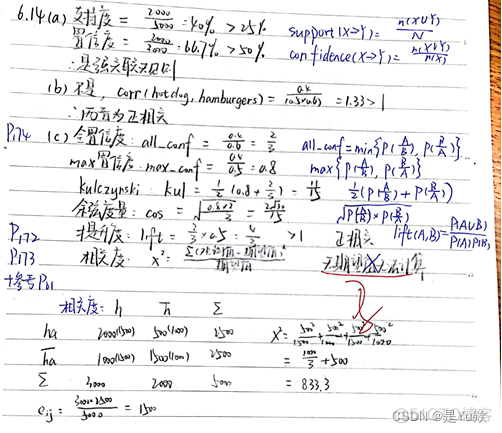 6.14(a) 支持度 = 2000/5000 = 40% > 25%    support(X→Y) = n(X∪Y)/N
置信度 = 2000/3000 = 66.7% > 50%    confidence(X→Y) = n(X∪Y)/n(X)
∴是强关联规则
(b) 不是, corr(hotdog, hamburgers) = 0.4/(0.5×0.6) = 1.33 > 1
∴两者为正相关
P174 (c) 全置信度: all_conf = 0.4/0.6 = 2/3    all_conf = min{P(A/B), P(B/A)}
max置信度: max_conf = 0.4/0.5 = 0.8    max{P(A/B), P(B/A)}
kulczynski: kul = 1/2(0.8+2/3) = 11/15    1/2(P(A/B)+P(B/A))
余弦度量: cos = √(0.8×2/3) = 2√30/15    √(P(A/B)×P(B/A))
P172 提升度: lift = 2/3 ÷ 0.5 = 4/3 > 1 正相关 lift(A,B) = P(A∪B)/P(A)P(B)
P173 相关度: X² = Σ(观测值-期望值)²/期望值
+参考P61
相关度: h    h̅    Σ
ha    2000(1500)    500(1000)    2500    X² = 500²/1500 + 500²/1000 + 500²/1500 + 500²/1000
h̅a̅    1000(1500)    1500(1000)    2500    = 1000/3 + 500
Σ    3000    2000    5000    = 833.3
eij = 3000×2500/5000 = 1500
CSDN @是Yu欸